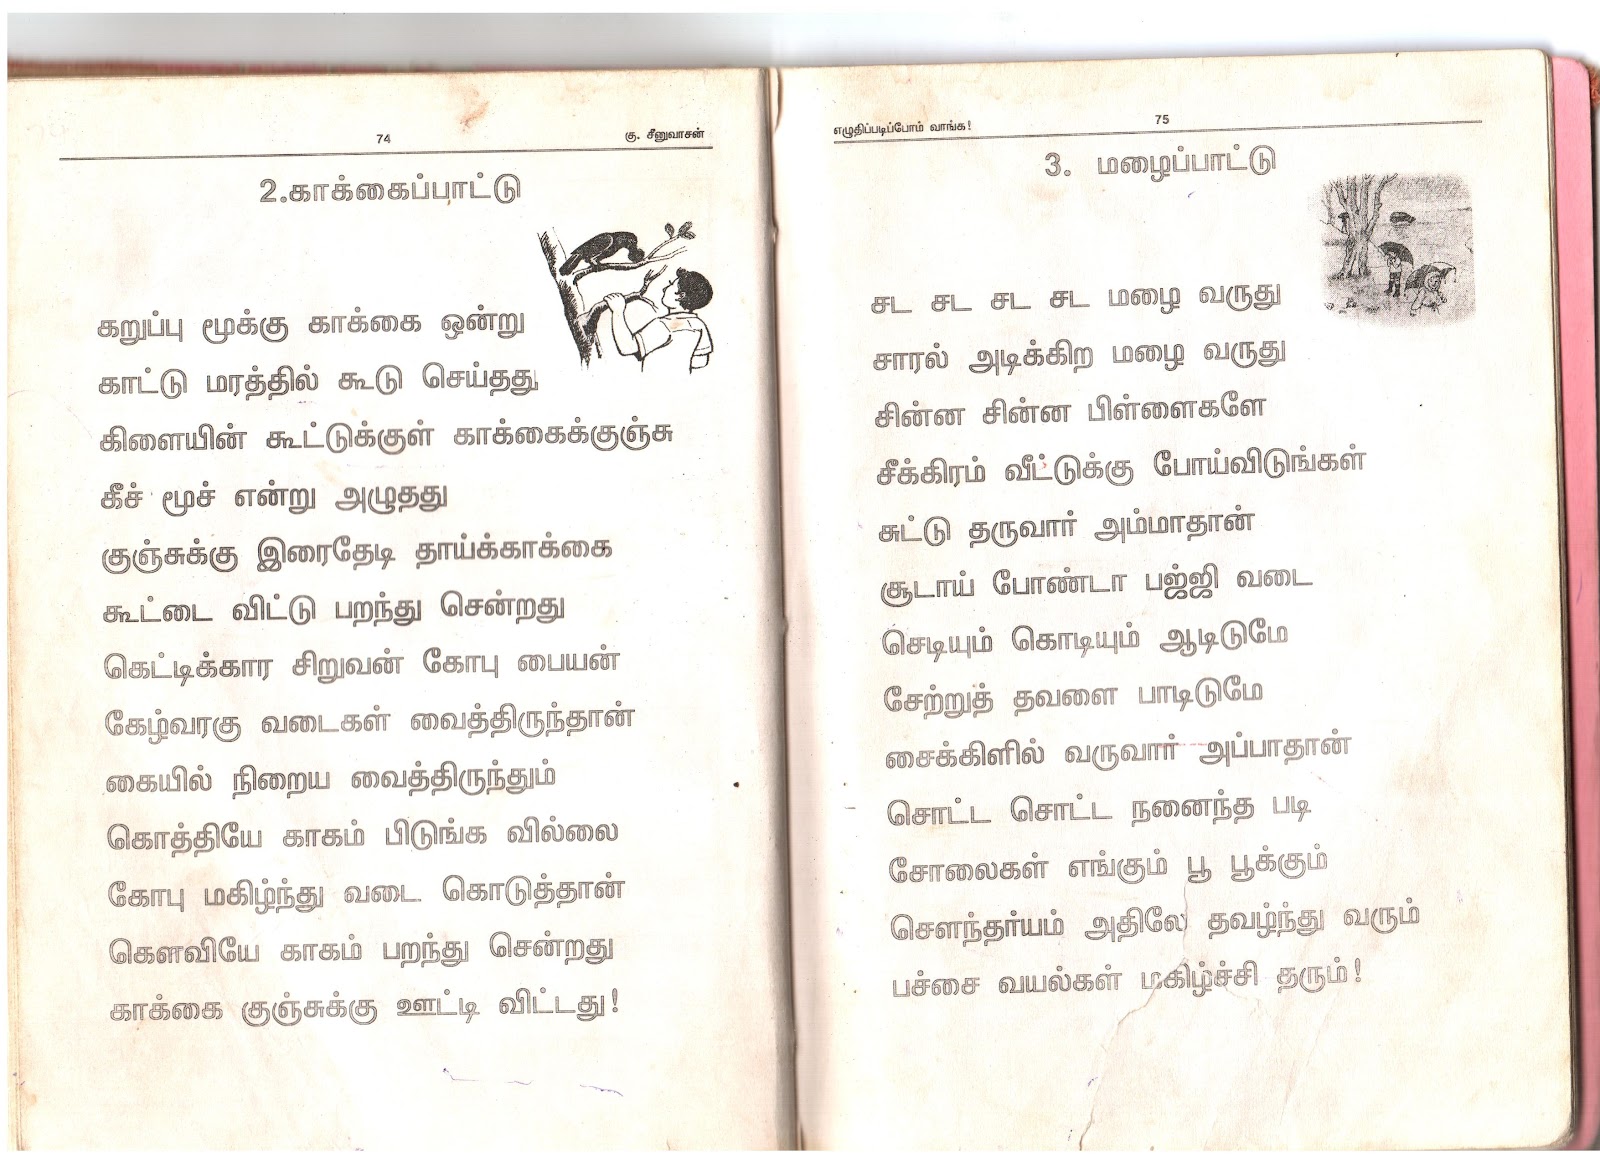 74
கு. சீனுவாசன்
2.காக்கைப்பாட்டு
கறுப்பு மூக்கு காக்கை ஒன்று
காட்டு மரத்தில் கூடு செய்தது
கிளையின் கூட்டுக்குள் காக்கைக்குஞ்சு
கீச் மூச் என்று அழுதது
குஞ்சுக்கு இரைதேடி தாய்க்காக்கை
கூட்டை விட்டு பறந்து சென்றது
கெட்டிக்கார சிறுவன் கோபு பையன்
கேழ்வரகு வடைகள் வைத்திருந்தான்
கையில் நிறைய வைத்திருந்தும்
கொத்தியே காகம் பிடுங்க வில்லை
கோபு மகிழ்ந்து வடை கொடுத்தான்
கௌவியே காகம் பறந்து சென்றது
காக்கை குஞ்சுக்கு ஊட்டி விட்டது!
எழுதிப்படிப்போம் வாங்க!
75
3. மழைப்பாட்டு
சட சட சட சட மழை வருது
சாரல் அடிக்கிற மழை வருது
சின்ன சின்ன பிள்ளைகளே
சீக்கிரம் வீட்டுக்கு போய்விடுங்கள்
சுட்டு தருவார் அம்மாதான்
சூடாய் போண்டா பஜ்ஜி வடை
செடியும் கொடியும் ஆடிடுமே
சேற்றுத் தவளை பாடிடுமே
சைக்கிளில் வருவார் அப்பாதான்
சொட்ட சொட்ட நனைந்த படி
சோலைகள் எங்கும் பூ பூக்கும்
சௌந்தர்யம் அதிலே தவழ்ந்து வரும்
பச்சை வயல்கள் மகிழ்ச்சி தரும்!